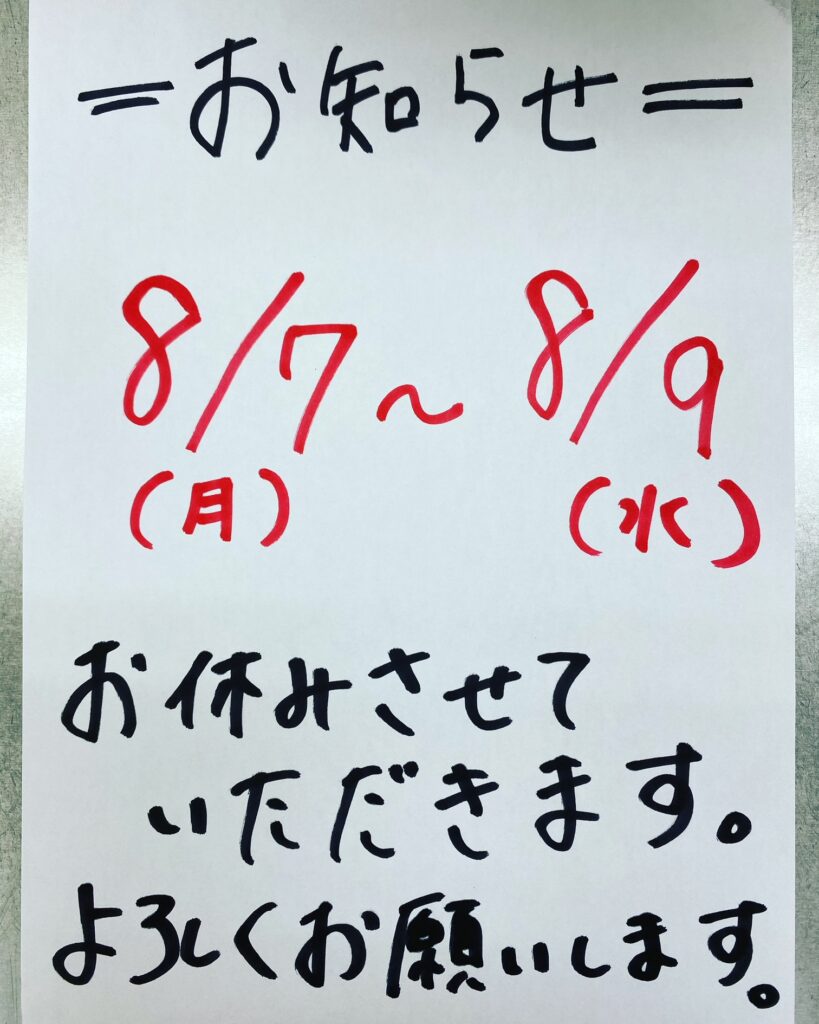 =お知らせ=
8/7~8/9
(月) (水)
お休みさせて
いただきます。
よろしくお願いします。